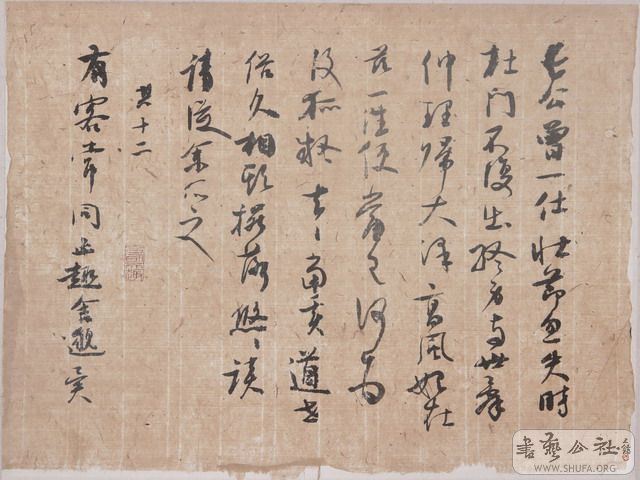 長公曾一仕壯節忽失時
杜門不復出終身與世辭
仲理歸大澤高風始在
茲一往便當已何為
復狐疑去々當奚道世
俗久相欺擺落悠々談
請從余所之
其十二
有客常同止趣舍邈異
書藝公社
WWW.SHUFA.ORG